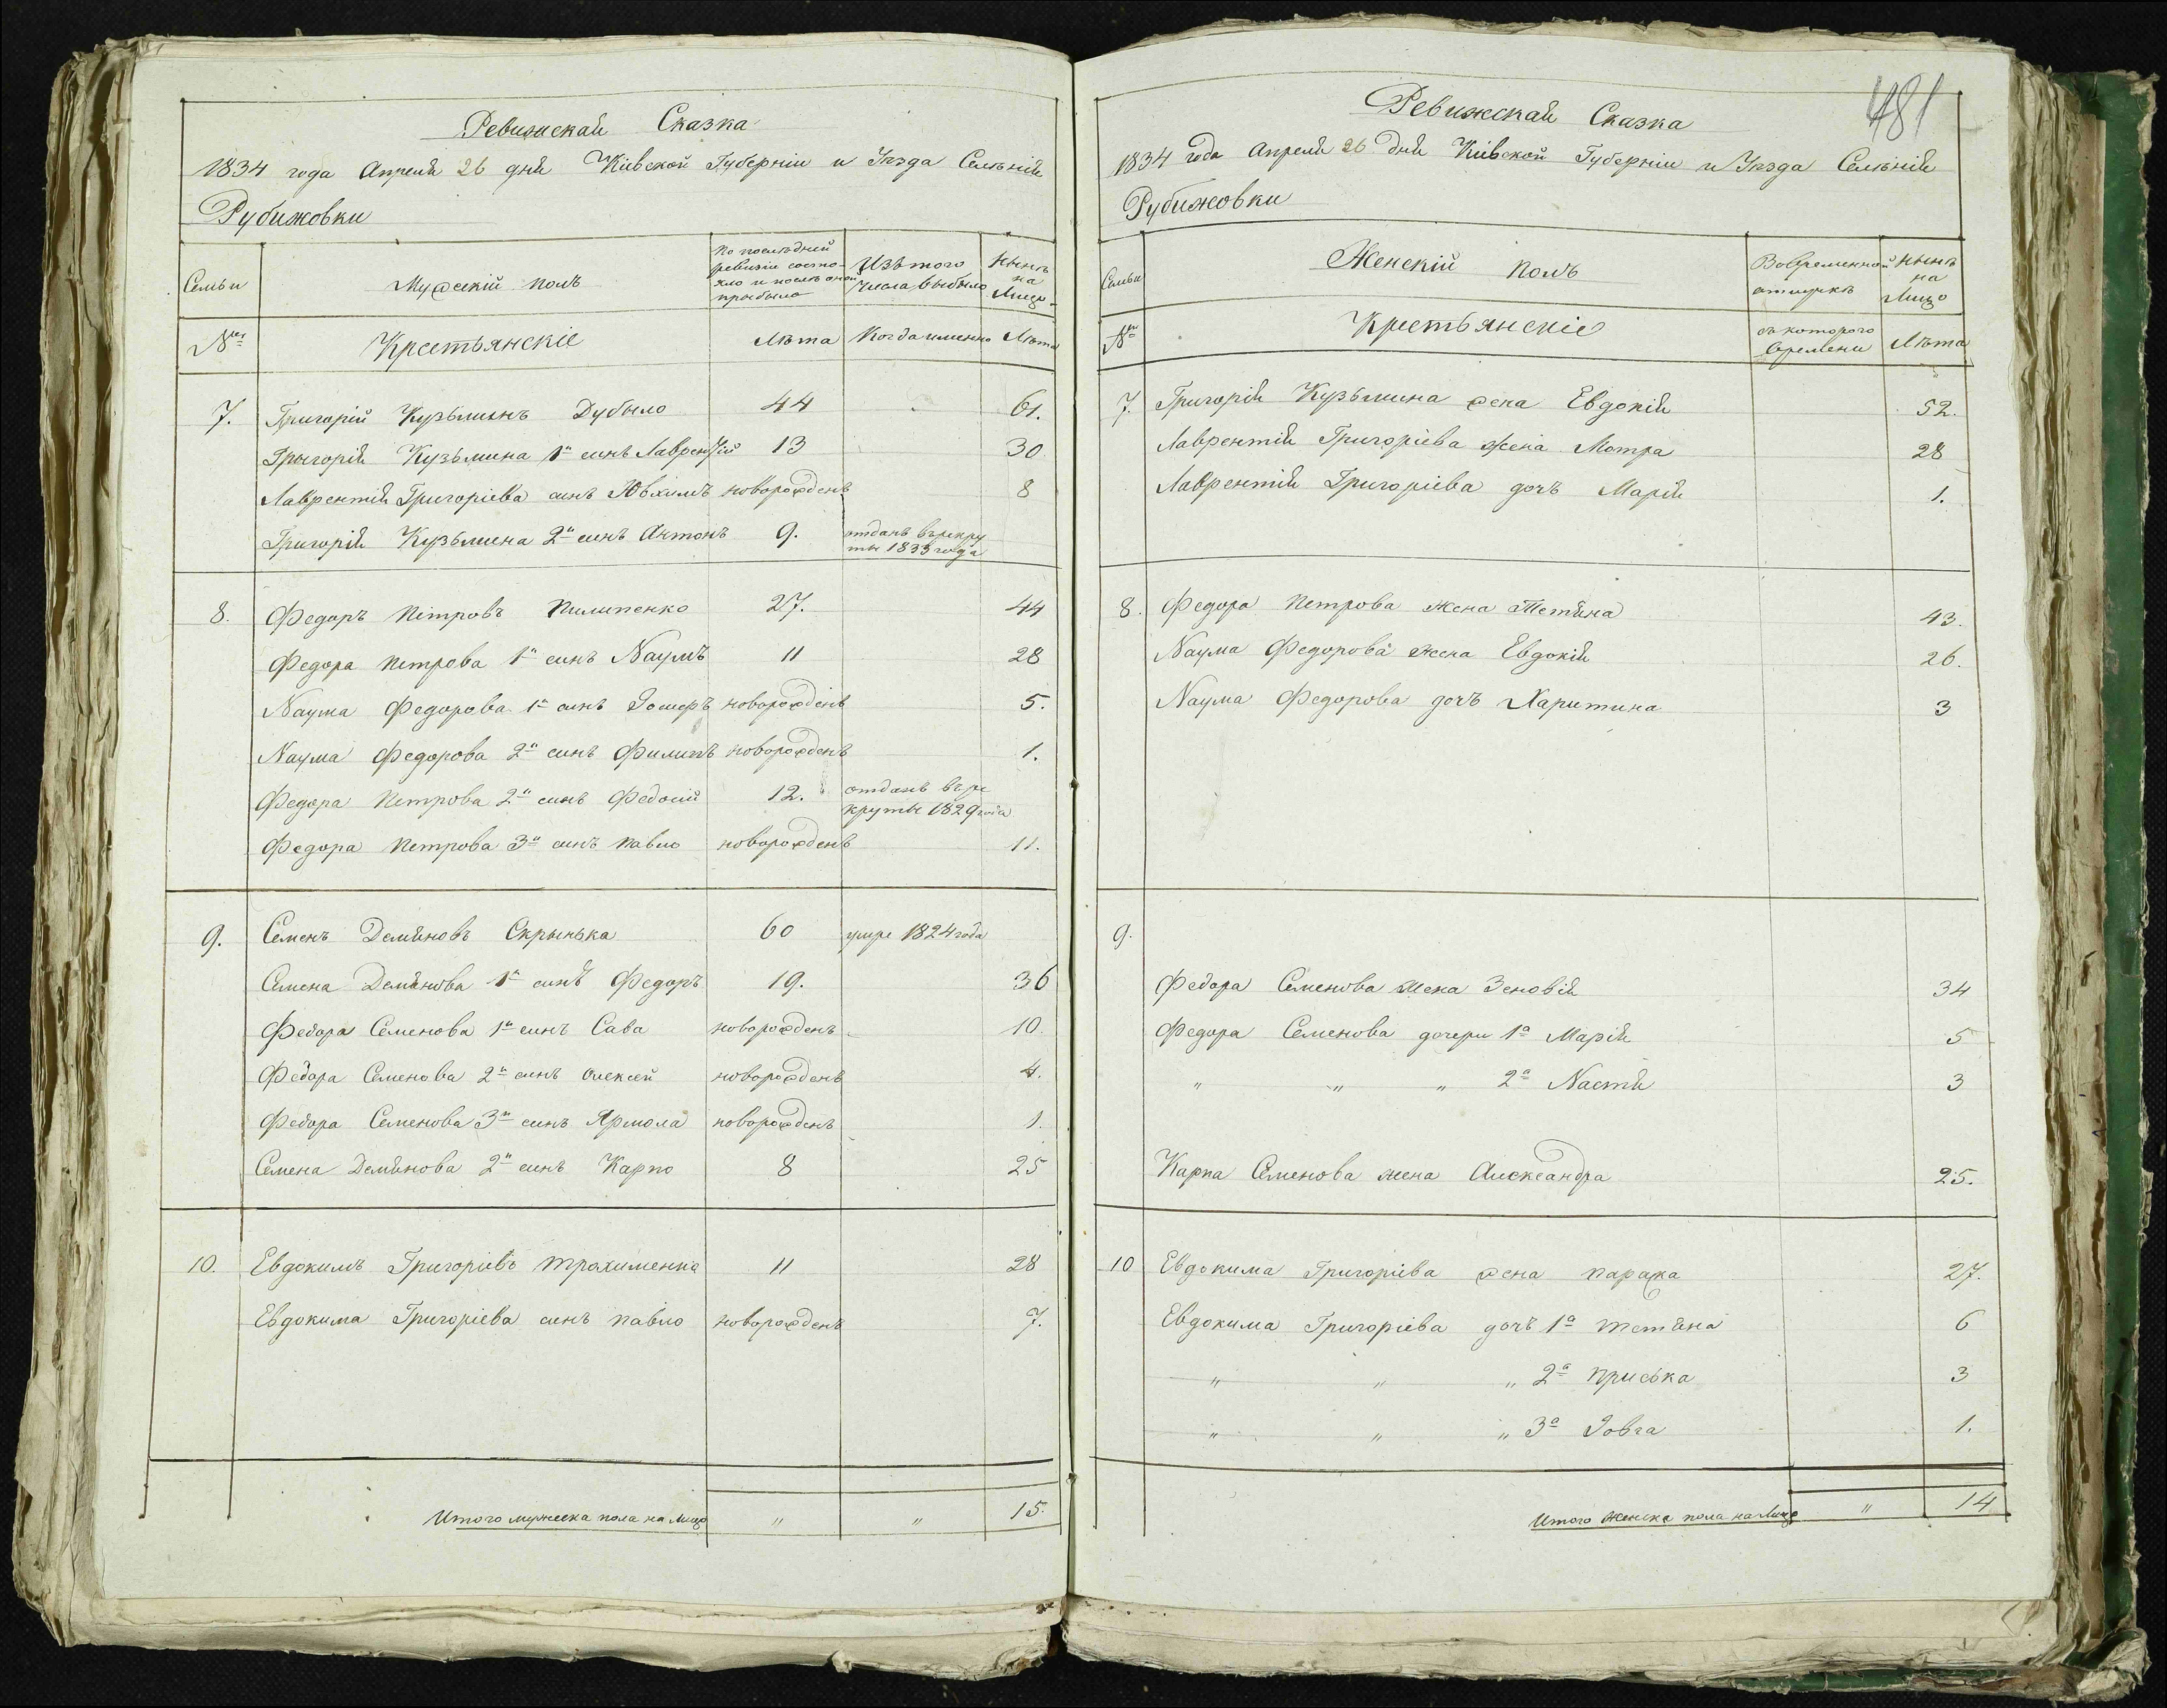 Ревижская Сказка
1834 года Апреля 26 дня Кіевской Губерніи и Уезда Селѣнія
Рубижовки
Семьи
Мужескій полъ
По послѣдней ревизіи состояло и послѣ оной прибыло
Изътого числа выбыло
Нынѣ на Лицо
№
Крестьянскіе
Лѣта
Когда именно
Лѣта
7. Григорій Кузьминъ Дубыло 44 61.
Григорія Кузьмина 1й синъ Лаврентій 13 30
Лаврентія Григоріева синъ Ювхимъ новорожденъ 8
Григорія Кузьмина 2й синъ Антонъ 9. отданъ въ рекру
ты 1833 года
8. Федоръ Петровъ Пилипенко 27. 44
Федора Петрова 1й синъ Наумъ 11 28
Наума Федорова 1й синъ новорожденъ 5.
Наума Федорова 2й синъ Филипъ новорожденъ 1.
Федора Петрова 2й синъ Федосій 12. отданъ въ ре
круты 1829 года
Федора Петрова 3й синъ Павло новорожденъ 11.
9. Семенъ Демяновъ Скрынька 60 умре 1824 года
Семена Демянова 1й синъ Федоръ 19. 36
Федора Семенова 1й синъ Сава новорожденъ 10.
Федора Семенова 2й синъ Олексей новорожденъ 4.
Федора Семенова 3й синъ Ярмола новорожденъ 1.
Семена Демянова 2й синъ Карпо 8 25
10. Евдокимъ Григоріевъ Трохименко 11 28
Евдокима Григоріева синъ Павло новорожденъ 7.
Итого мужеска пола на лицо " " 15.
481
Ревижская Сказка
1834 года Апреля 26 дня Кіевской Губерніи и Уезда Селѣнія
Рубижовки
Семьи
Женскій полъ
Вовременной отлучкѣ
Нынѣ на Лицо
№
Крестьянскіе
съ которого времени
Лѣта
7. Григорія Кузьмина жена Евдокія 52.
Лаврентія Григоріева жена Мотря 28
Лаврентія Григоріева дочъ Марія 1.
8. Федора Петрова жена Тетяна 43.
Наума Федорова жена Евдокія 26.
Наума Федорова дочъ Харитина 3
9.
Федора Семенова жена Зеновія 34
Федора Семенова дочери 1а Марія 5
" " " 2а Настя 3
Карпа Семенова жена Александра 25.
10 Евдокима Григоріева жена Параска 27.
Евдокима Григоріева дочъ 1а Тетяна 6
" " " 2а Приська 3
" " " 3а 1.
Итого женска пола на лицо " 14